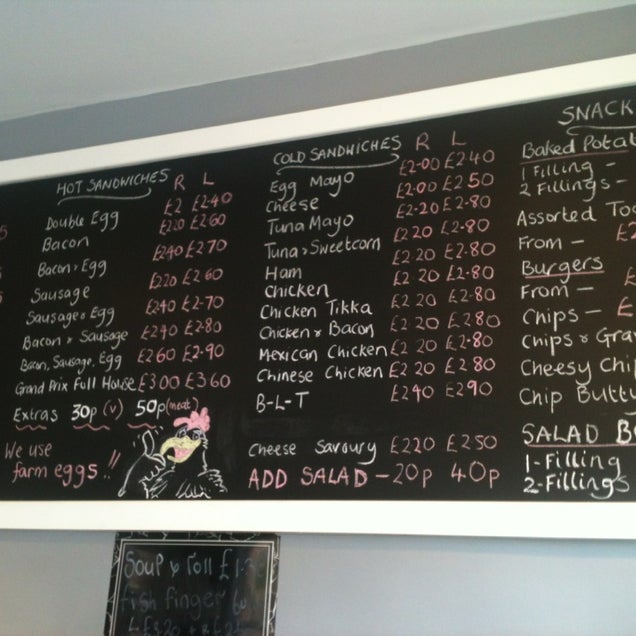 HOT SANDWICHES R L
Double Egg £2 £2·40
Bacon £2 20 £2·60
Bacon & Egg £2 40 £2·70
Sausage £2 20 £2·60
Sausage & Egg £2 40 £2·70
Bacon & Sausage £2 40 £2·80
Bacon, Sausage, Egg £2 60 £2·90
Grand Prix Full House £3 00 £3 60
Extras 30p (v) 50p (meat)
We use
farm eggs !!
COLD SANDWICHES R L
Egg Mayo £2·00 £2 40
Cheese £2·00 £2 50
Tuna Mayo £2·20 £2·80
Tuna & Sweetcorn £2 20 £2·80
Ham £2 20 £2·80
Chicken £2 20 £2·80
Chicken Tikka £2 20 £2·80
Chicken & Bacon £2 20 £2·80
Mexican Chicken £2 20 £2·80
Chinese Chicken £2 20 £2 80
B-L-T £2 40 £2 90
Cheese Savoury £2 20 £2 50
ADD SALAD - 20p 40p
SNACK
Baked Potat
1 Filling -
2 Fillings -
Assorted Toa
From - £2
Burgers
From - £
Chips - £
Chips & Gra
Cheesy Chip
Chip Butt
SALAD B
1-Filling
2-Fillings
Soup & roll £1
fish finger